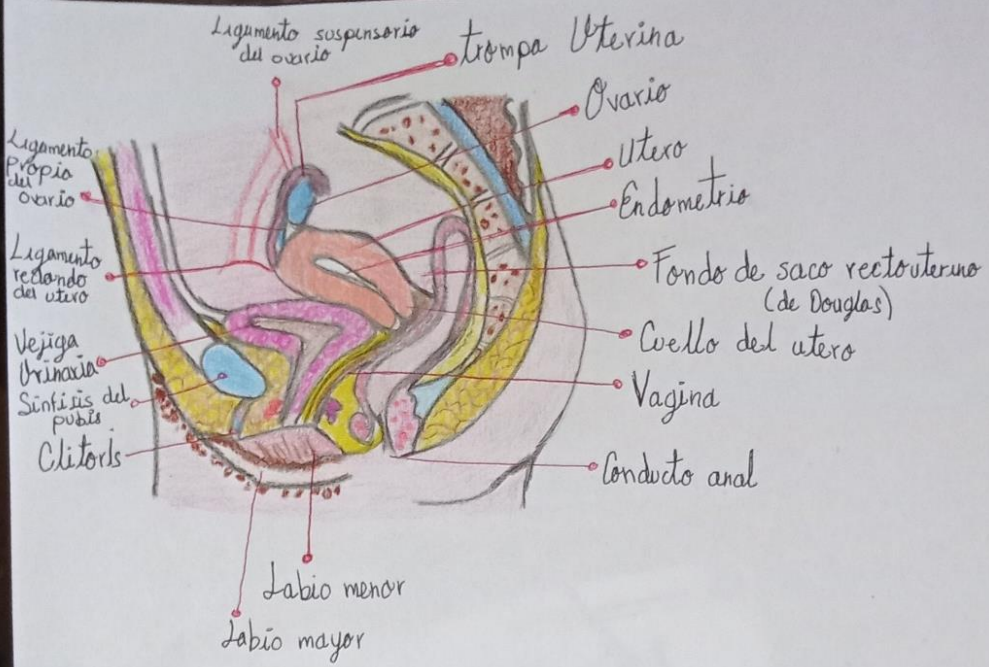 Ligamento suspensorio
del ovario
trompa Uterina
Ovario
Utero
Endometrio
Fondo de saco rectouterino
(de Douglas)
Cuello del utero
Vagina
Conducto anal
Ligamento
propio
del
ovario
Ligamento
redondo
del utero
Vejiga
Urinaria
Sinfisis del
pubis
Clitoris
Labio menor
Labio mayor